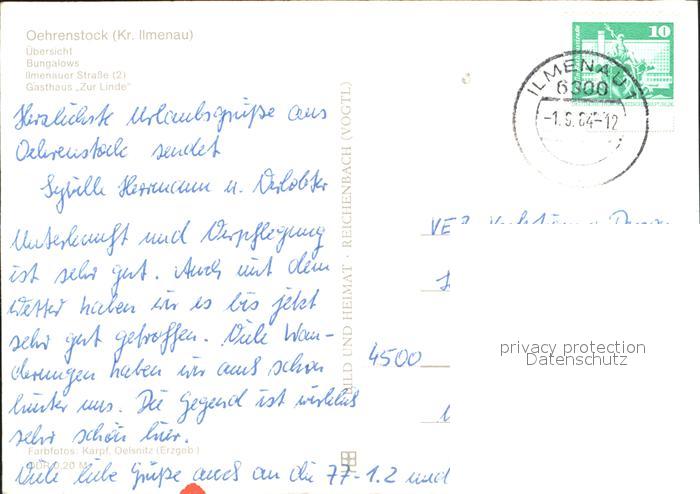 Oehrenstock (Kr. Ilmenau)
Übersicht
Bungalows
Ilmenauer Straße (2)
Gasthaus „Zur Linde"
Herzlichste Urlaubsgrüße aus
Oehrenstock sendet
Sybille Herrmann u. Verlobter
Unterkunft und Verpflegung
ist sehr gut. Auch mit dem
Wetter haben wir es bis jetzt
sehr gut getroffen. Viele Wan-
derungen haben wir auch schon
hinter uns. Die Gegend ist wirklich
sehr schön hier.
Farbfotos: Karpf, Oelsnitz (Erzgeb.)
Viele liebe Grüße auch an die 77-1.2 und
BILD UND HEIMAT · REICHENBACH (VOGTL)
10
ILMENAU 1
6300
4500
privacy protection
Datenschutz